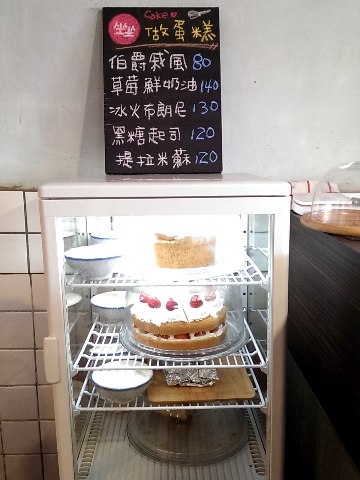 Cake
坐坐 做蛋糕
伯爵戚風 80
草莓鮮奶油 140
冰火布朗尼 130
黑糖起司 120
提拉米蘇 120